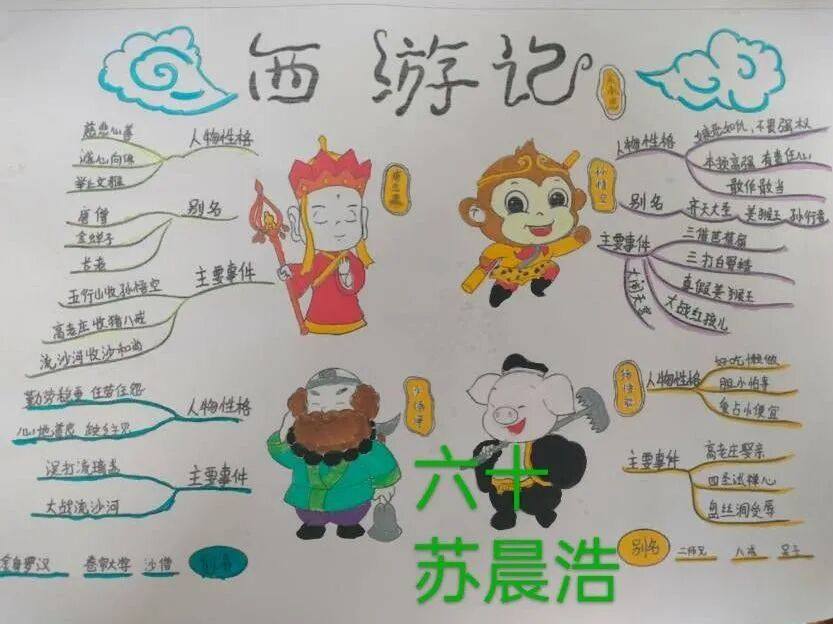 西游记
慈悲心善
人物性格
举止文雅
唐僧
别名
金蝉子
长老
主要事件
五行山收孙悟空
高老庄收猪八戒
流沙河收沙和尚
孙悟空
人物性格
嫉恶如仇，不畏强权
本领高强 有责任心
敢作敢当
别名
齐天大圣 美猴王 孙行者
主要事件
三借芭蕉扇
三打白骨精
真假美猴王
大战红孩儿
大闹天宫
勤劳稳重 任劳任怨
人物性格
心地善良
误打流璃盏
主要事件
大战流沙河
金身罗汉 卷帘大学 沙僧
好吃懒做
人物性格
胆小怕事
贪占小便宜
高老庄娶亲
主要事件
四圣试禅心
盘丝洞受辱
别名
二师兄 八戒 呆子
六十
苏晨浩